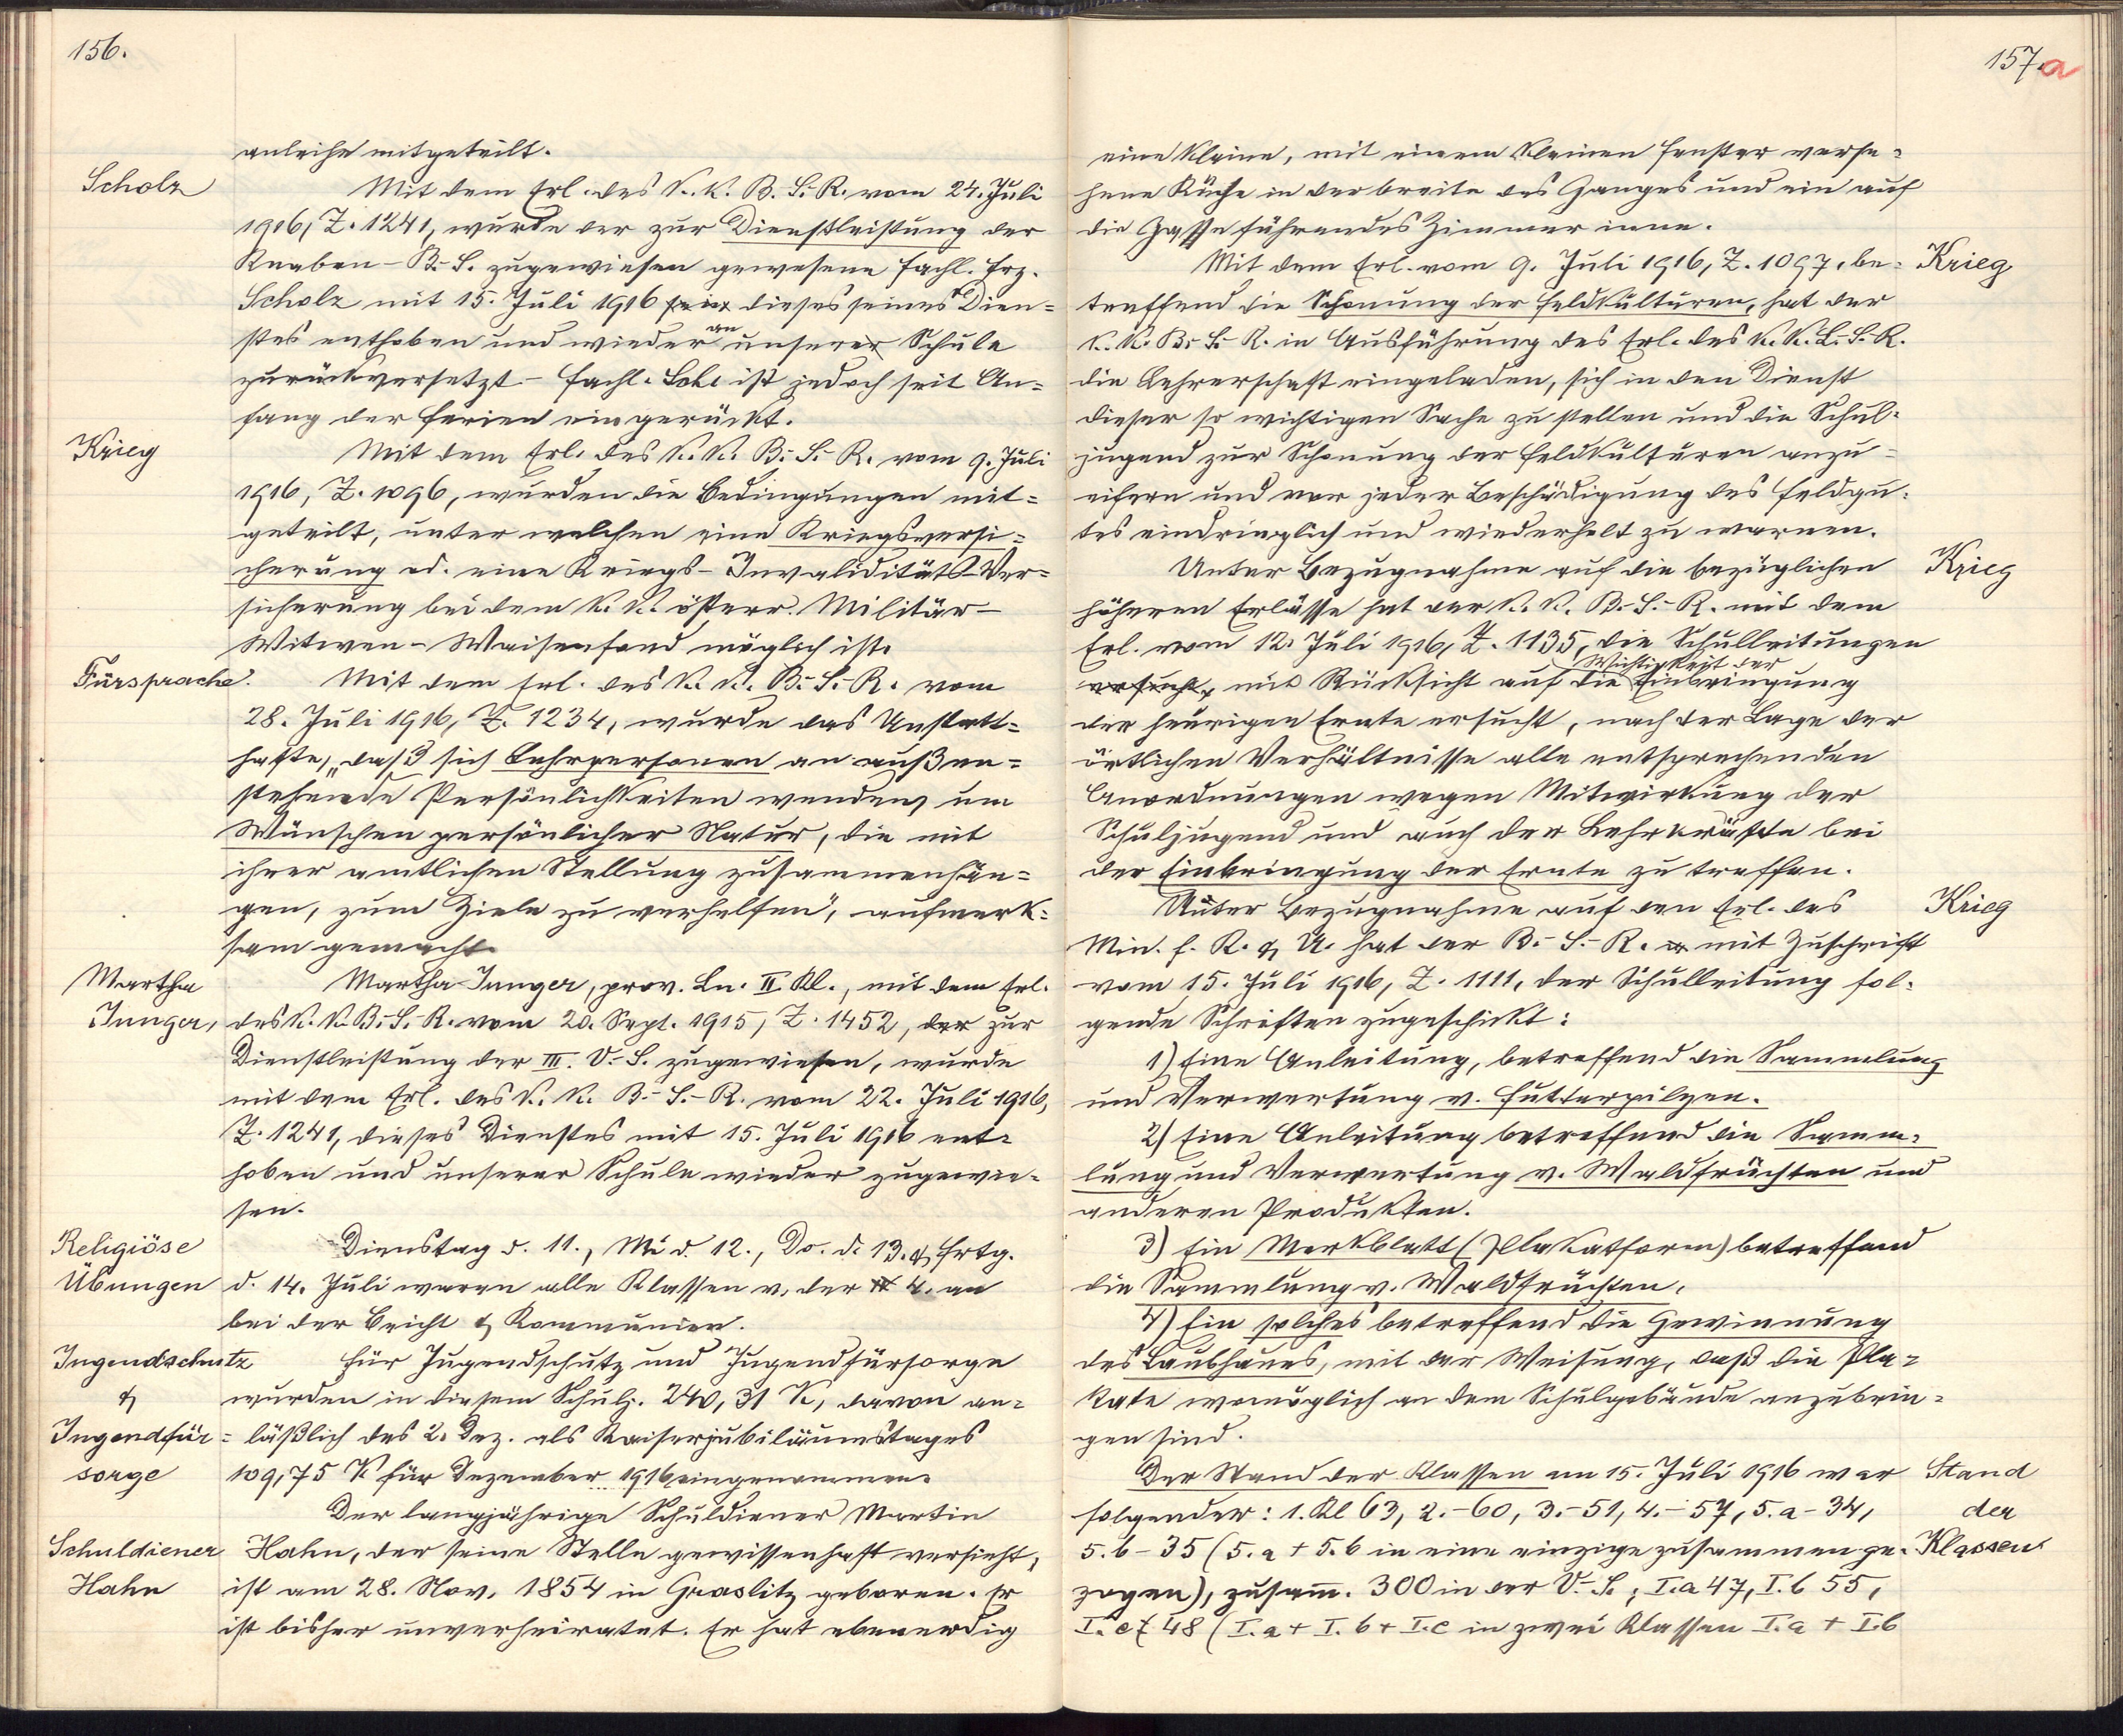 156.
anleihe mitgeteilt.
Scholz
Mit dem Erl. des k. k. B. S. R. vom 24. Juli
1916, Z. 1241, wurde der zur Dienstleistung der
Knaben-B. S. zugewiesen gewesene Fachl. Frz.
Scholz mit 15. Juli 1916 dieses seines Dien=
stes enthoben und wieder an unserer Schule
zurückversetzt – Fachl. Scho ist jedoch seit An=
fang der Ferien eingerückt.
Krieg
Mit dem Erl. des k. k. B.-S.-R. vom 9. Juli
1916, Z. 1096, wurden die Bedingungen mit=
geteilt, unter welchen eine Kriegsversi=
cherung od. eine Kriegs-Invaliditäts-Ver=
sicherung bei dem k. k. österr. Militär-
Witwen-Waisenfond möglich ist.
Fürsprache.
Mit dem Erl. des k. k. B.-S.-R. vom
28. Juli 1916, Z. 1234, wurde das Unstatt=
hafte, „daß sich Lehrpersonen an außen=
stehende Persönlichkeiten wenden, um
Wünschen persönlicher Natur, die mit
ihrer amtlichen Stellung zusammenhän=
gen, zum Ziele zu verhelfen“, aufmerk=
sam gemacht.
Martha
Junger,
Martha Junger, prov. Ln. II. Kl., mit dem Erl.
des k. k. B.-S.-R. vom 20. Sept. 1915, Z. 1452, der zur
Dienstleistung der III. V.-S. zugewiesen, wurde
mit dem Erl. des k. k. B.-S.-R. vom 22. Juli 1916,
Z. 1241, dieses Dienstes mit 15. Juli 1916 ent=
hoben und unserer Schule wieder zugewie=
sen.
Religiöse
Übungen
Dienstag d. 11., Mi d. 12., Do. d. 13. & Frtg.
d. 14. Juli waren alle Klassen v. der 4. an
bei der Beicht & Kommunion.
Jugendschutz
&
Jugendfür=
sorge
Für Jugendschutz und Jugendfürsorge
wurden in diesem Schulj. 240,31 K, davon an=
läßlich des 2. Dez. als Kaiserjubiläumstages
109,75 K für Dezember 1916 eingenommen.
Schuldiener
Hahn
Der langjährige Schuldiener Martin
Hahn, der seine Stelle gewissenhaft versieht,
ist am 28. Nov. 1854 in Graslitz geboren. Er
ist bisher unverheiratet. Er hat ebenerdig
157.a
eine kleine, mit einem kleinen Fenster verse=
hene Küche in der breite des Ganges und ein auf
die Gasse führendes Zimmer inne.
Krieg
Mit dem Erl. vom 9. Juli 1916, Z. 1097, be=
treffend die Schonung der Feldkulturen, hat der
k. k. B.-S.-R. in Ausführung des Erl. des k. k. L.-S.-R.
die Lehrerschaft eingeladen, sich in den Dienst
dieser so wichtigen Sache zu stellen und die Schul=
jugend zur Schonung der Feldkulturen anzu=
eifern und vor jeder Beschädigung des Feldgu=
tes eindringlich und wiederholt zu warnen.
Krieg
Unter Bezugnahme auf die bezüglichen
höheren Erlässe hat der k. k. B.-S.-R. mit dem
Erl. vom 12. Juli 1916, Z. 1135, die Schulleitungen
ersucht, mit Rücksicht auf die Wichtigkeit der Einbringung
der heurigen Ernte ersucht, nach der Lage der
örtlichen Verhältnisse alle entsprechenden
Anordnungen wegen Mitwirkung der
Schuljugend und auch der Lehrkräfte bei
der Einbringung der Ernte zu treffen.
Krieg
Unter Bezugnahme auf den Erl. des
Min. f. K. & U. hat der B.-S.-R. mit Zuschrift
vom 15. Juli 1916, Z. 1111, der Schulleitung fol=
gende Schriften zugeschickt:
1) Eine Anleitung, betreffend die Sammlung
und Verwertung v. Futterpilzen.
2) Eine Anleitung betreffend die Samm=
lung und Verwertung v. Waldfrüchten und
anderen Produkten.
3) Ein Merkblatt (Plakatform) betreffend
die Sammlung v. Waldfrüchten.
4) Ein solches betreffend die Gewinnung
des Laubheues, mit der Weisung, daß die Pla=
kate womöglich an dem Schulgebäude anzubrin=
gen sind.
Stand
der
Klassen
Der Stand der Klassen am 15. Juli 1916 war
folgender: 1. Kl 63, 2.-60, 3.-51, 4.-57, 5.a-34,
5.b-35 (5.a + 5.b in eine einzige zusammenge=
zogen), zusam. 300 in der V.-S.; I.a 47, I.b 55,
I.c 48 (I.a + I.b + I.c in zwei Klassen I.a + I.b